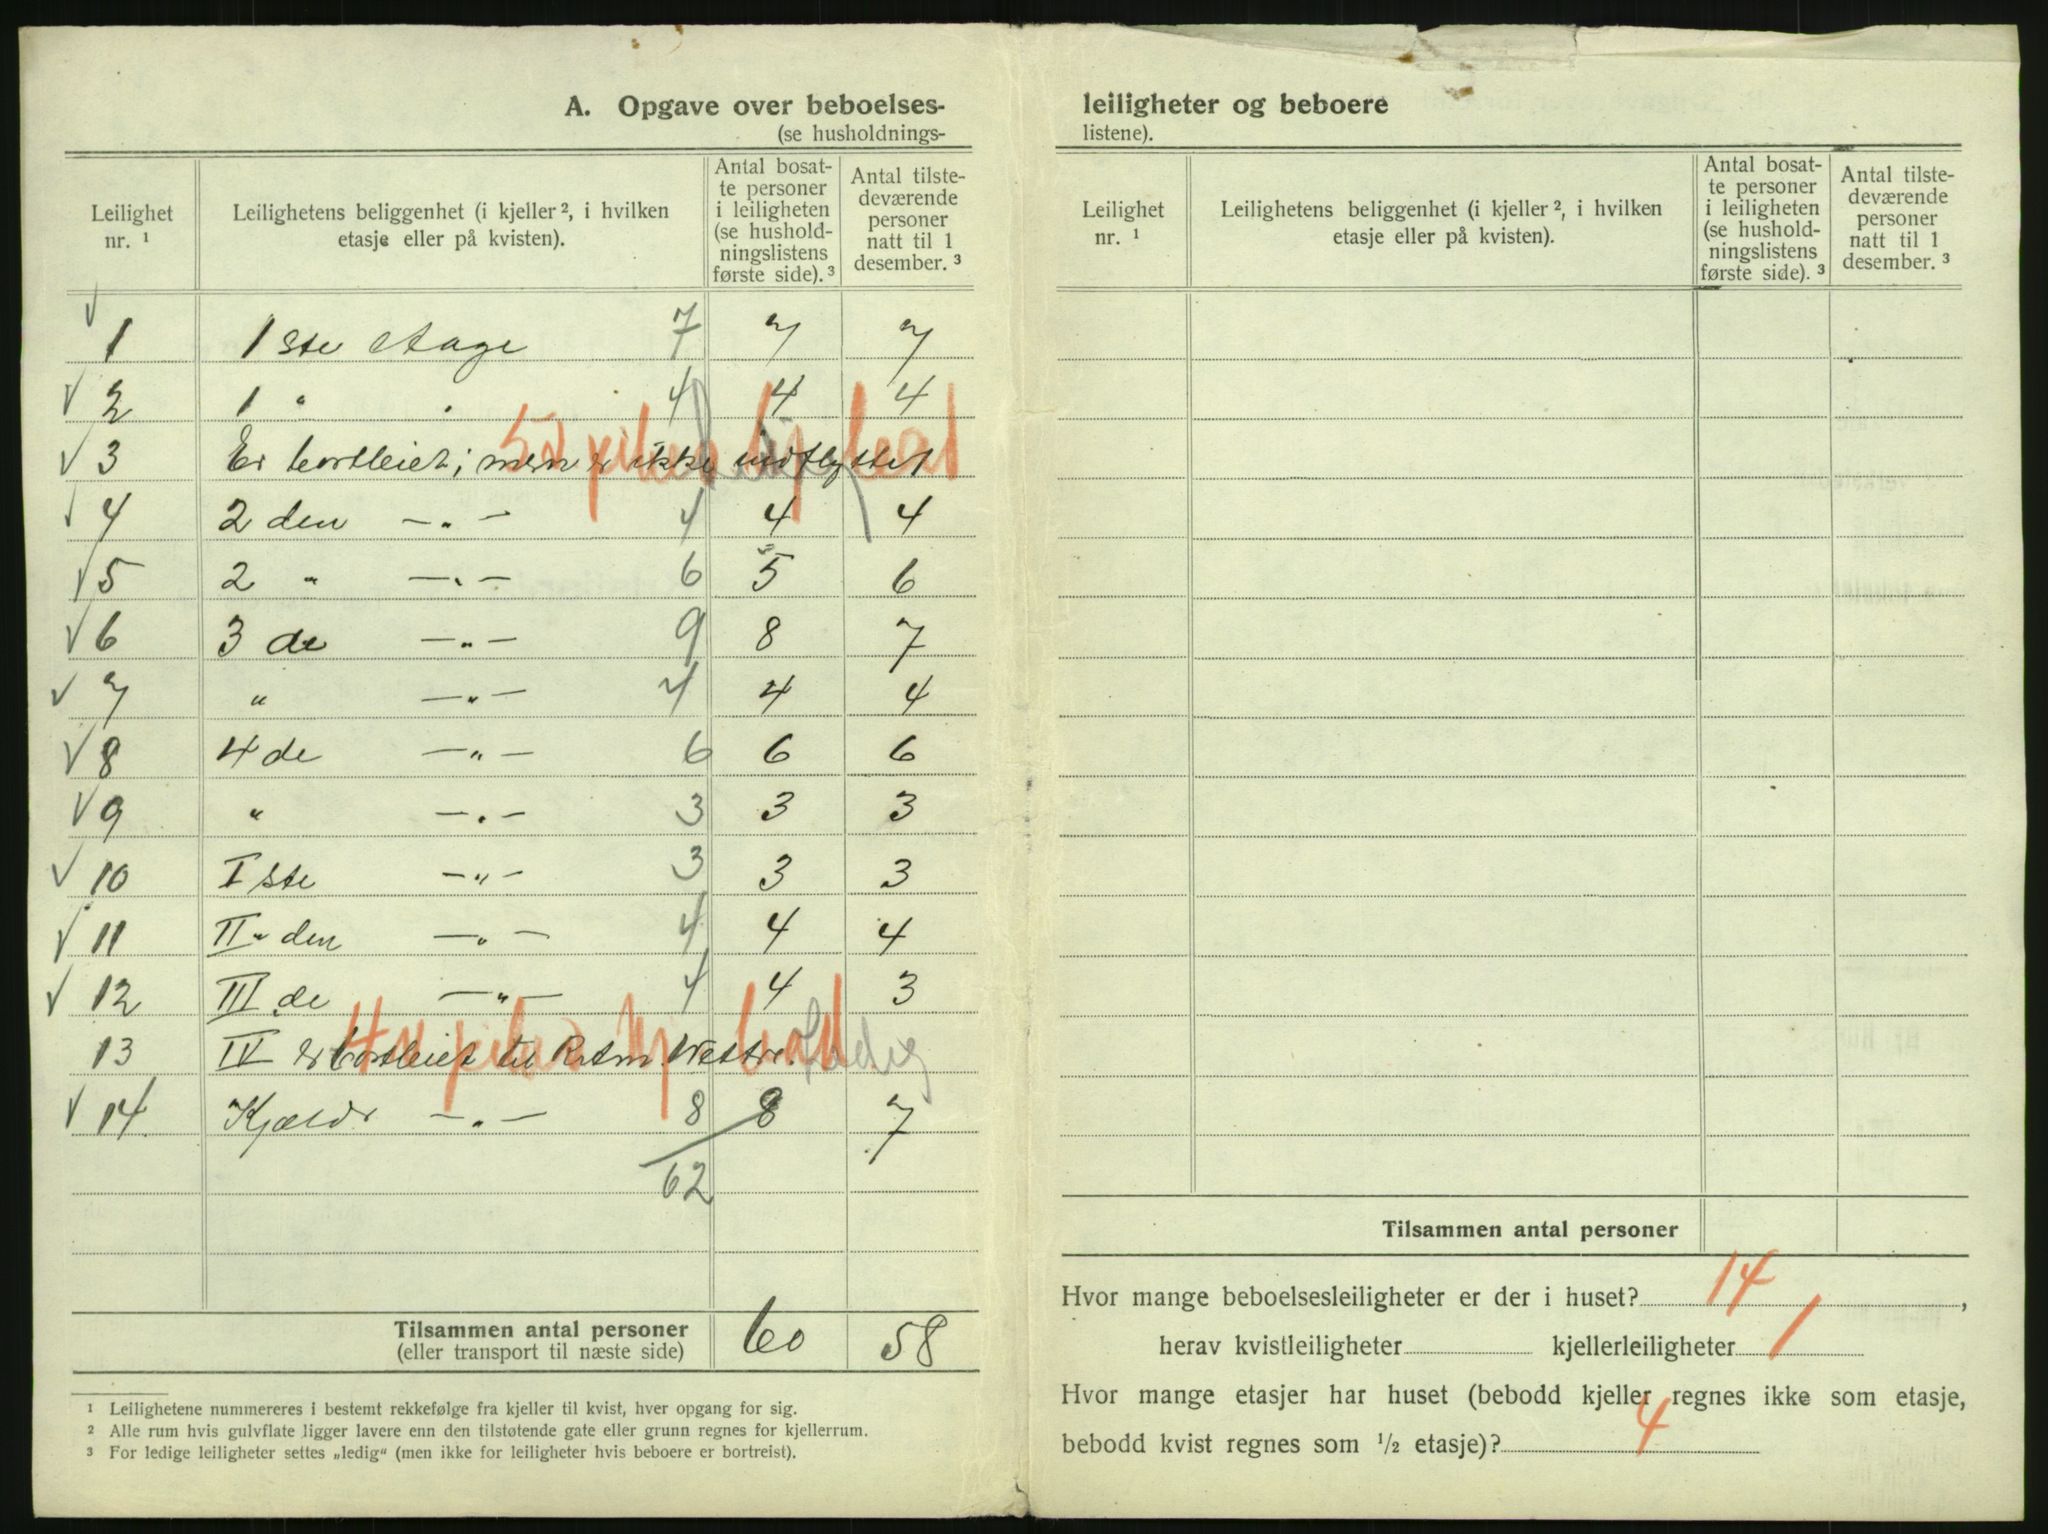 A. Opgave over beboelses-
(se husholdnings-
Leilighet nr. ¹
Leilighetens beliggenhet (i kjeller ², i hvilken etasje eller på kvisten).
Antal bosat-
te personer
i leiligheten
(se hushold-
ningslistens
første side). ³
Antal tilste-
deværende
personer
natt til 1
desember. ³
1 1 ste etage 7 7 7
2 1 " " 4 4 4
3 Er bortleiet; men er ikke indflyttet
4 2 den —„— 4 4 4
5 2 " —„— 6 5 6
6 3 de —„— 9 8 7
7 " —„— 4 4 4
8 4 de —„— 6 6 6
9 " —„— 3 3 3
10 I ste —„— 3 3 3
11 II den —„— 4 4 4
12 III de —„— 4 4 3
13 IV er bortleiet til Ledig
14 Kjælder —„— 8 8 7
62
Tilsammen antal personer 60 58
(eller transport til næste side)
¹ Leilighetene nummereres i bestemt rekkefølge fra kjeller til kvist, hver opgang for sig.
² Alle rum hvis gulvflate ligger lavere enn den tilstøtende gate eller grunn regnes for kjellerrum.
³ For ledige leiligheter settes „ledig“ (men ikke for leiligheter hvis beboere er bortreist).
leiligheter og beboere
listene).
Leilighet nr. ¹
Leilighetens beliggenhet (i kjeller ², i hvilken etasje eller på kvisten).
Antal bosat-
te personer
i leiligheten
(se hushold-
ningslistens
første side). ³
Antal tilste-
deværende
personer
natt til 1
desember. ³
Tilsammen antal personer
Hvor mange beboelsesleiligheter er der i huset? 14,
herav kvistleiligheter kjellerleiligheter 1
Hvor mange etasjer har huset (bebodd kjeller regnes ikke som etasje,
bebodd kvist regnes som ½ etasje)? 4